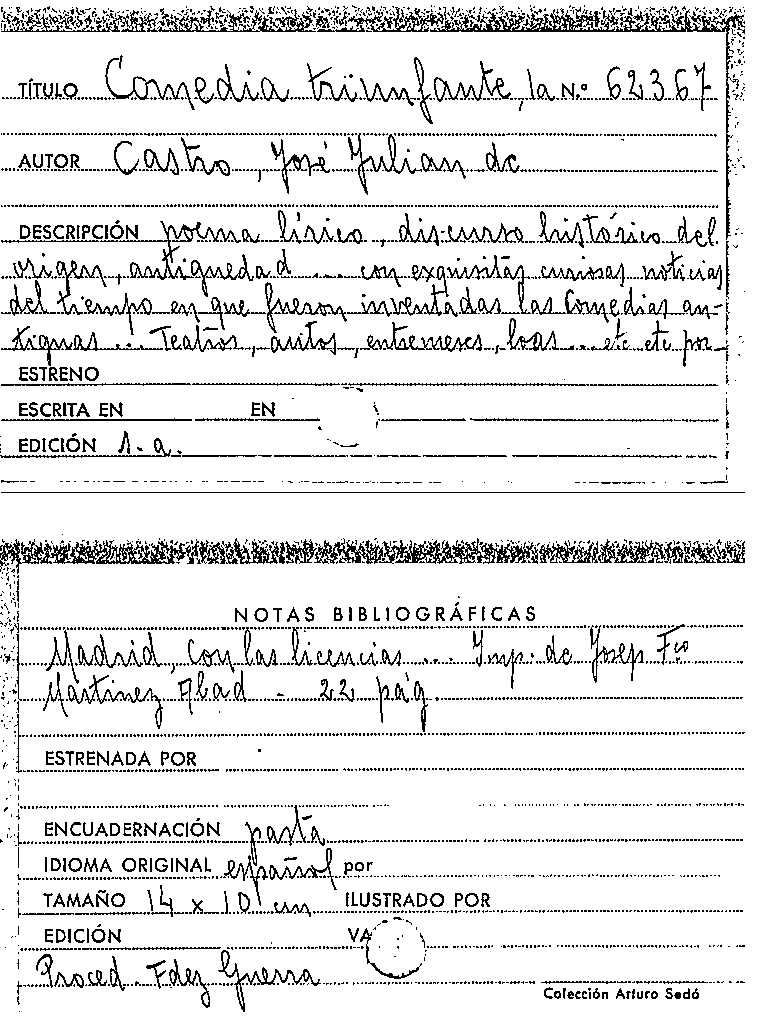 TÍTULO Comedia triunfante, la N.º 62367
AUTOR Castro, José Julian de
DESCRIPCIÓN poema lírico, discurso histórico del
origen, antiguedad ... con exquisitas curiosas noticias
del tiempo en que fueron inventadas las Comedias an-
tiguas ... Teatros, autos, entremeses, loas ... etc etc por
ESTRENO
ESCRITA EN EN
EDICIÓN s. a.
NOTAS BIBLIOGRÁFICAS
Madrid, con las licencias ... Imp. de Josep Fco
Martinez Abad - 22 pág.
ESTRENADA POR
ENCUADERNACIÓN pasta
IDIOMA ORIGINAL español por
TAMAÑO 14 x 10 cm ILUSTRADO POR
EDICIÓN VA
Proced. Fdez Guerra
Colección Arturo Sedó